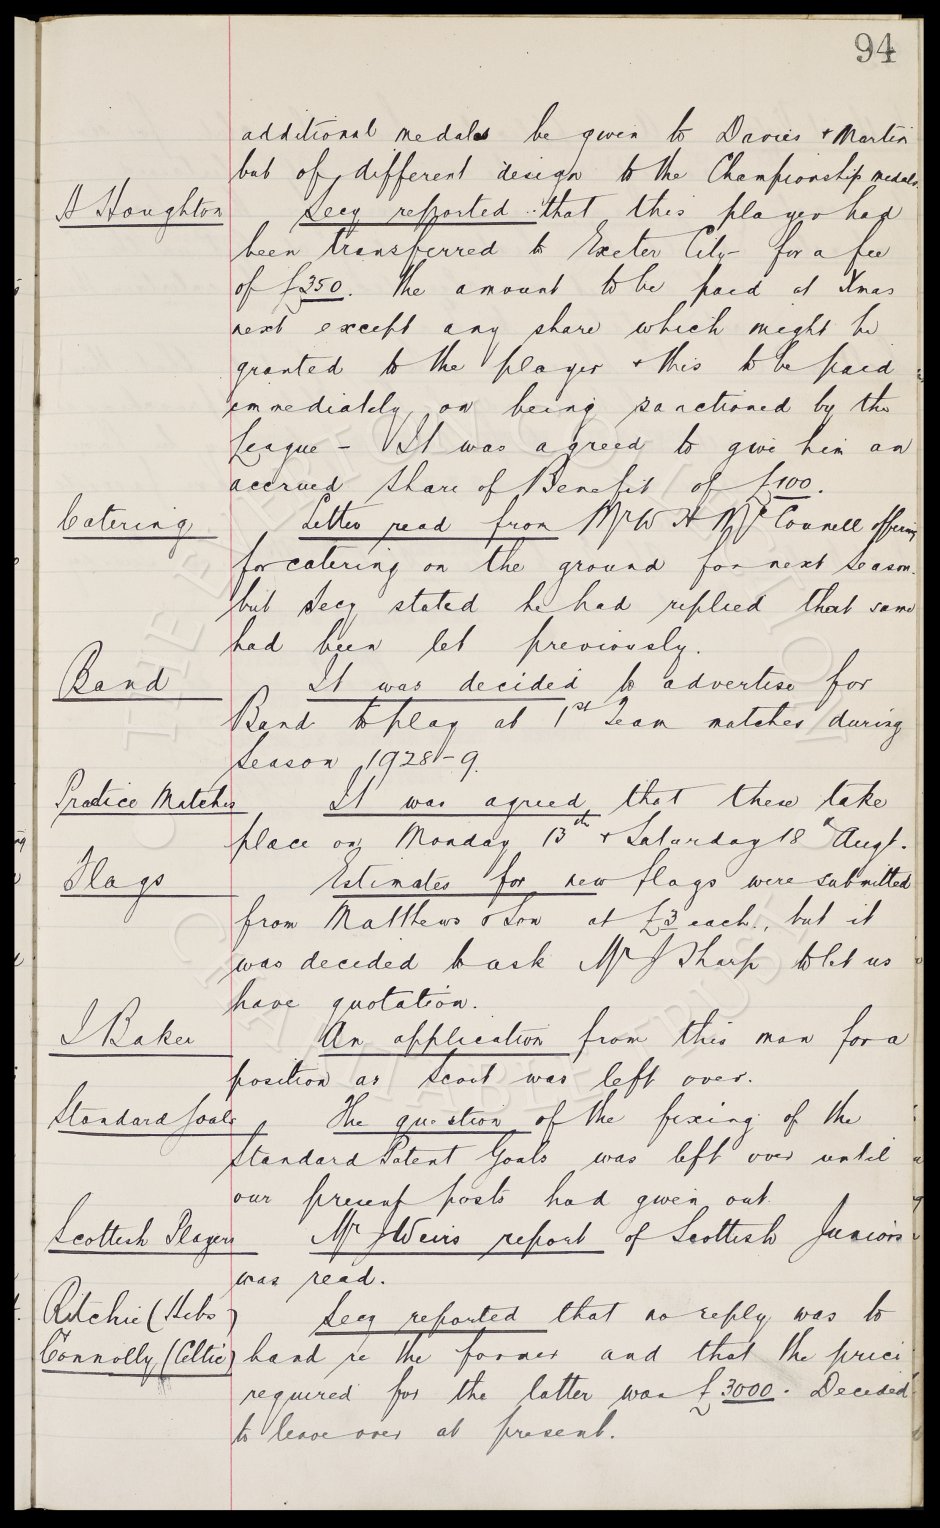 94
additional medals be given to Davies & Martin
but of different design to the Championship medals.
H Houghton Secy reported that this player had
been transferred to Exeter City for a fee
of £350. The amount to be paid at Xmas
next except any share which might be
granted to the player & this to be paid
immediately on being sanctioned by the
League - It was agreed to give him an
accrued share of Benefit of £100.
Catering Letter read from Mr W H McConnell offering
for catering on the ground for next season.
but Secy stated he had replied that same
had been let previously.
Band It was decided to advertise for
Band to play at 1st Team matches during
Season 1928-9.
Pratice Matches It was agreed that these take
place on Monday 13th & Saturday 18th Augt.
Flags Estimates for new flags were submitted
from Matthews & Son at £3 each, but it
was decided to ask Mr J Sharp to let us
have quotation.
I Baker An application from this man for a
position as Scout was left over.
Standard Goals The question of the fixing of the
Standard Patent Goals was left over until
our present posts had given out
Scottish Players Mr J Weirs report of Scottish Juniors
was read.
Ritchie (Hibs) Secy reported that no reply was to
Connolly (Celtic) hand re the former and that the price
required for the latter was £3000. Decided
to leave over at present.
THE EVERTON COLLECTION
CHARITABLE TRUST